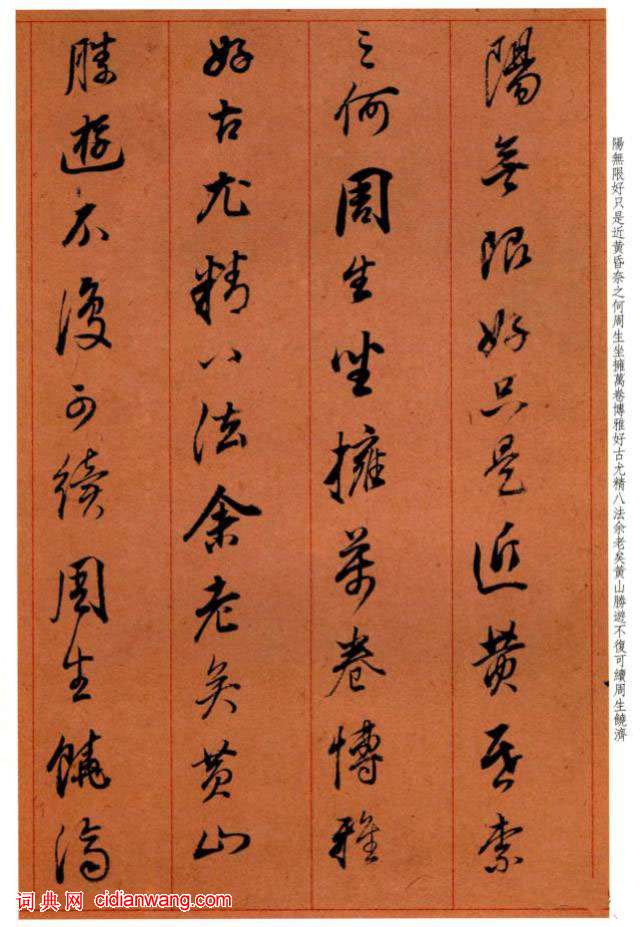 陽無限好只是近黃昏奈
之何周生坐擁萬卷博雅
好古尤精八法余老矣黃山
勝遊不復可續周生饒濟
陽無限好只是近黃昏奈之何周生坐擁萬卷博雅好古尤精八法余老矣黃山勝遊不復可續周生饒濟
词典网 cidianwang.com